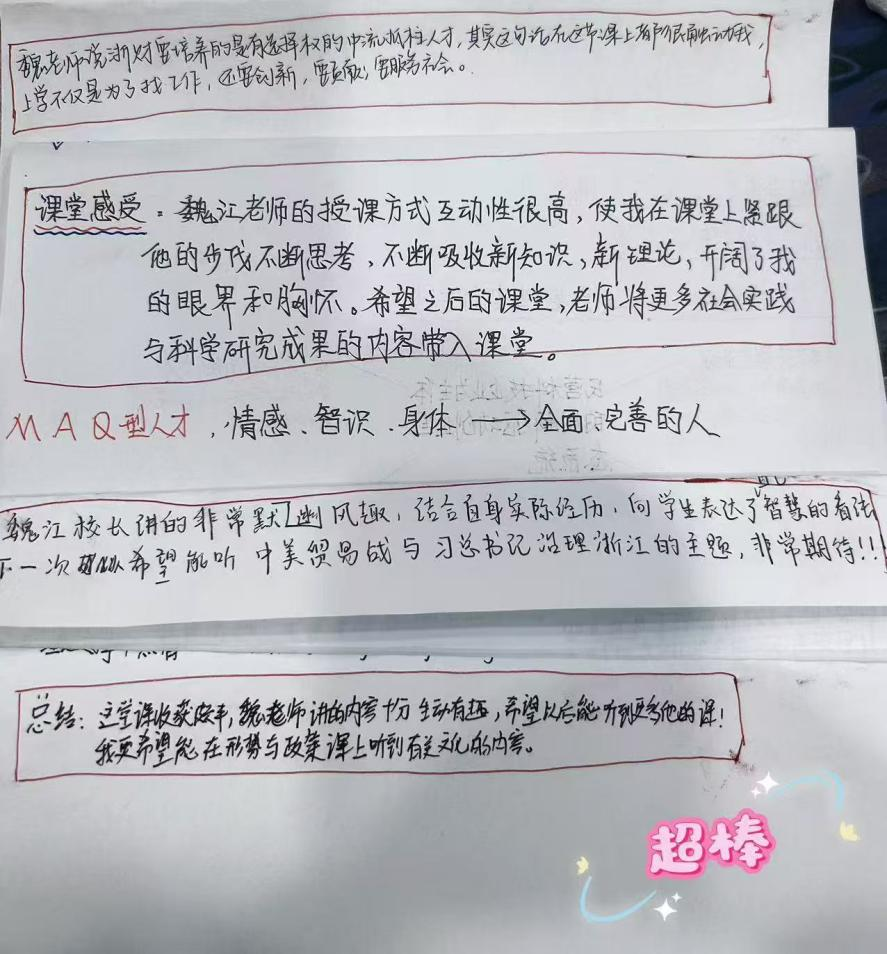 魏老师说浙财要培养的是有选择权的中流砥柱人才，其实这句话在这节课上都很触动我，
上学不仅是为了找工作，还要创新，要贡献，要服务社会。
课堂感受：魏江老师的授课方式互动性很高，使我在课堂上紧跟
他的步伐不断思考，不断吸收新知识，新理论，开阔了我
的眼界和胸怀。希望之后的课堂，老师将更多社会实践
与科学研究成果的内容带入课堂。
MAQ型人才，情感、智识、身体→全面完善的人
魏江校长讲的非常默幽风趣，结合自身实际经历，向学生表达了智慧的看法
下一次希望能听中美贸易战与习总书记治理浙江的主题，非常期待!!!
总结：这堂课收获颇丰，魏老师讲的内容十分生动有趣，希望以后能听到更多他的课！
我更希望能在形势与政策课上听到有关文化的内容。
超棒